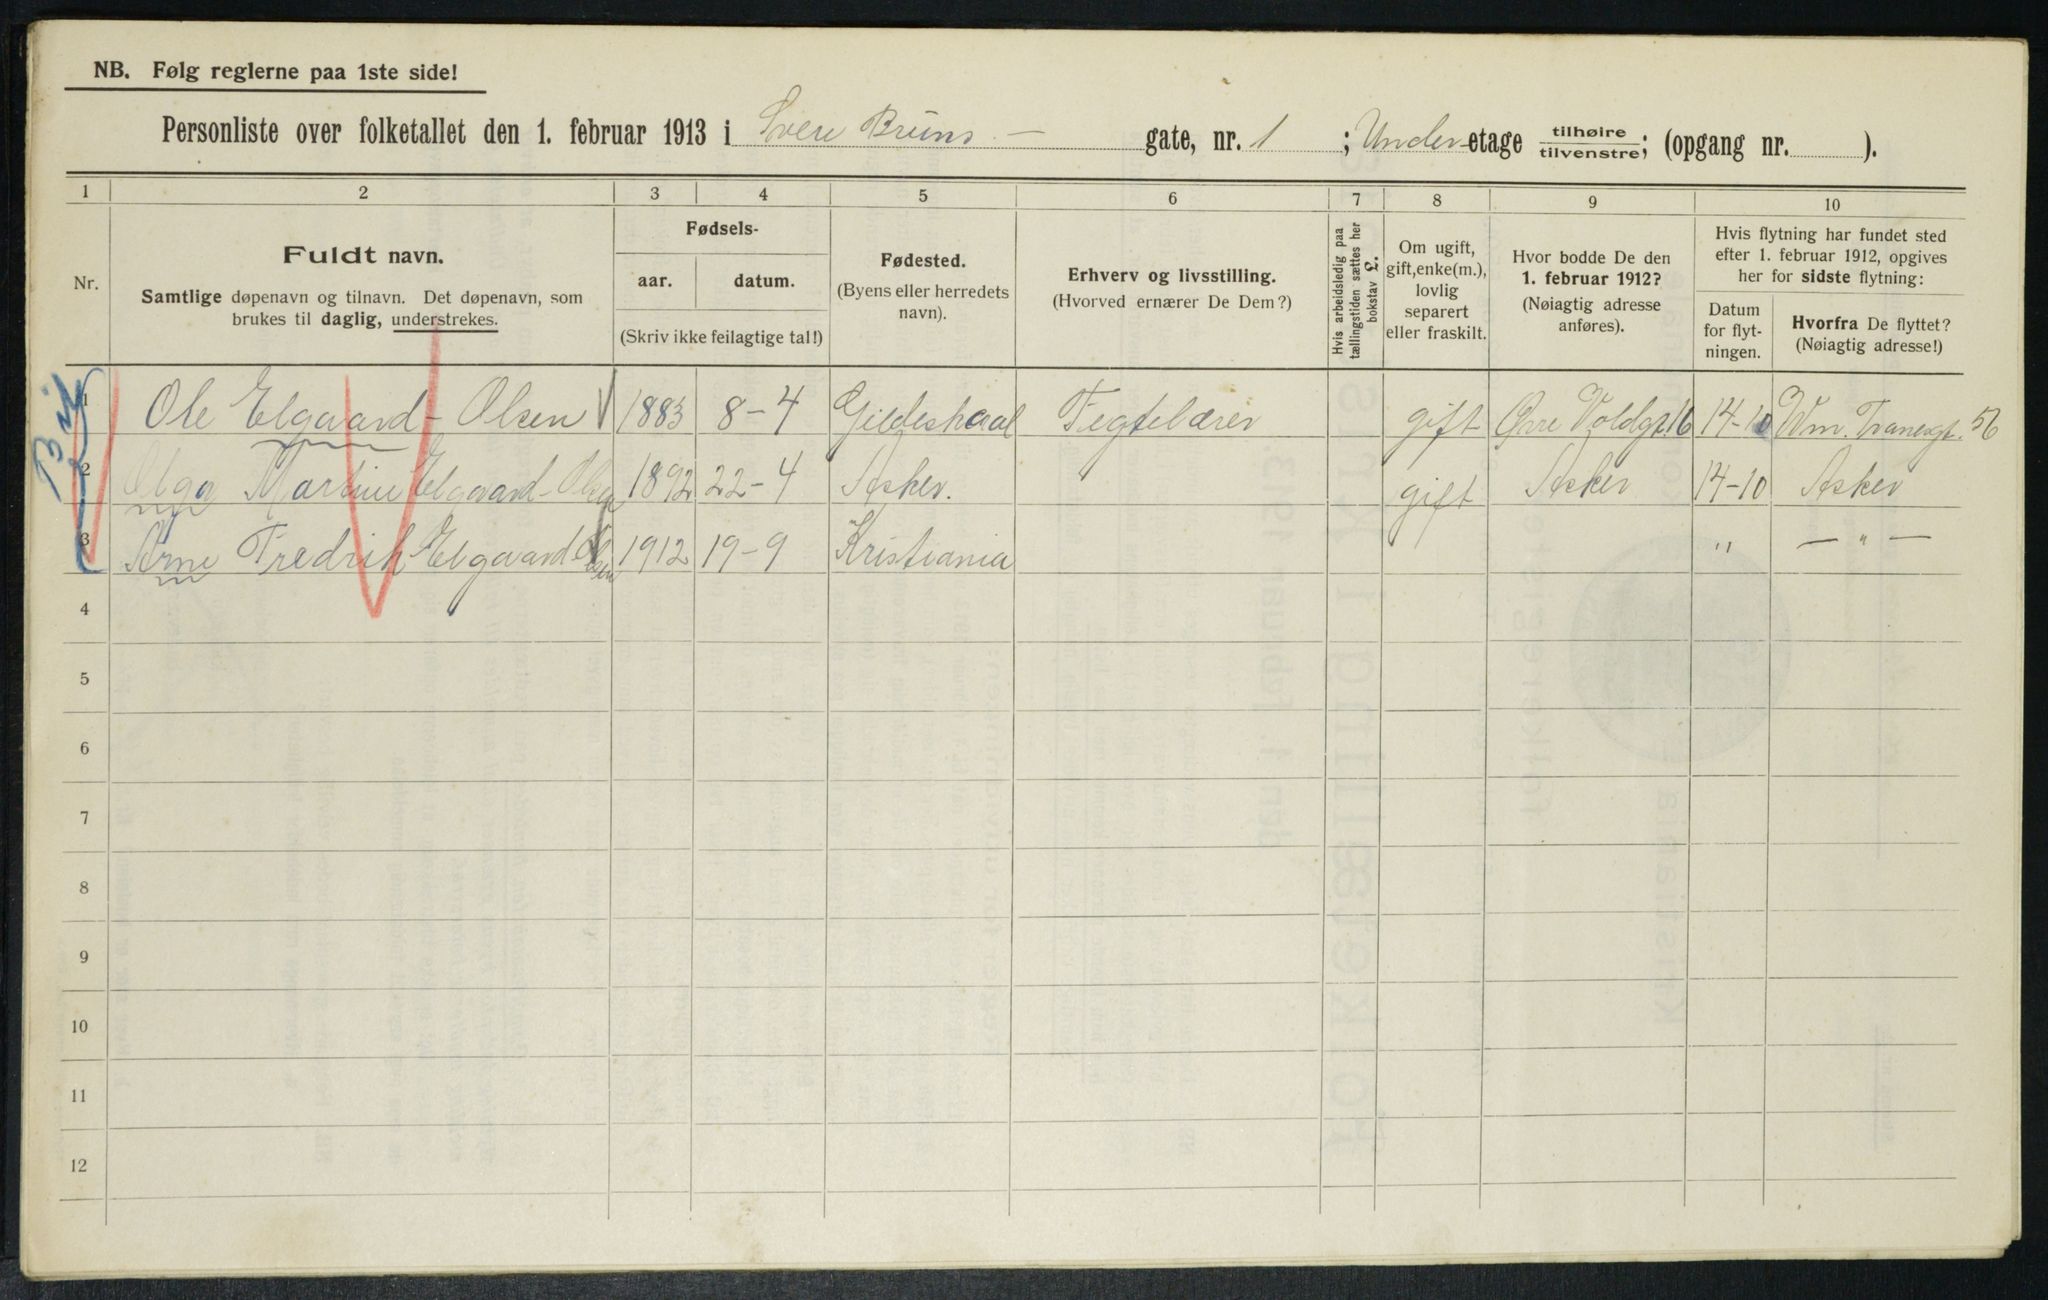 NB. Følg reglerne paa 1ste side!
Personliste over folketallet den 1. februar 1913 i Svere Bruns — gate, nr. 1 ; Under-etage tilhøire/tilvenstre; (opgang nr. ).
1 2 3 4 5 6 7 8 9 10
Nr.
Fuldt navn.
Samtlige døpenavn og tilnavn. Det døpenavn, som
brukes til daglig, understrekes.
Fødsels-
aar. datum.
(Skriv ikke feilagtige tal!)
Fødested.
(Byens eller herredets
navn).
Erhverv og livsstilling.
(Hvorved ernærer De Dem?)
Hvis arbeidsledig paa
tællingstiden sættes her
bokstav L.
Om ugift,
gift, enke(m.),
lovlig
separert
eller fraskilt.
Hvor bodde De den
1. februar 1912?
(Nøiagtig adresse
anføres).
Hvis flytning har fundet sted
efter 1. februar 1912, opgives
her for sidste flytning:
Datum
for flyt-
ningen.
Hvorfra De flyttet?
(Nøiagtig adresse!)
1 Ole Elgaard-Olsen 1883 8-4 Gildeskaal Fegtelærer gift Øvre Voldgt. 16 14-10 Wm. Tranesgt. 56
2 Olga Martine Elgaard-Olsen 1892 22-4 Asker. gift Asker 14-10 Asker
3 Arne Fredrik Elgaard-Olsen 1912 19-9 Kristiania " — " —
4
5
6
7
8
9
10
11
12